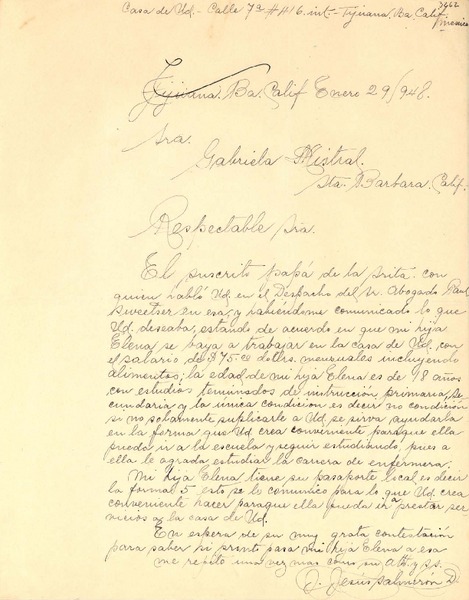 Casa de Ud.- Calle 7a # 1116. int.- Tijuana, Ba. Calif.
Mexico
Tijuana. Ba. Calif Enero 29/948.
Sra.
Gabriela Mistral.
Sta. Barbara. Calif.
Respectable Sra.
El suscrito papá de la Srita. con
quien habló Ud. en el Despacho del Sr. Abogado Paul
Sweetser en esa, y habiéndome comunicado lo que
Ud. deseaba, estando de acuerdo en que mi hija
Elena, se vaya a trabajar en la casa de Ud. con
el salario de $75.00 dollrs. mensuales incluyendo
alimentos; la edad de mi hija Elena es de 18 años
con estudios terminados de instrucción primaria, se
cundaria y la única condición es decir no condición
si no solamente suplicarle a Ud. se sirva ayudarla
en la forma que Ud. crea conveniente paraque ella
pueda ir a la escuela y seguir estudiando, pues a
ella le agrada estudiar la carrera de enfermera.
Mi hija Elena tiene su pasaporte local es decir
la forma 5, esto se lo comunico para lo que Ud. crea
conveniente hacer paraque ella pueda ir a prestar ser
vicios a la casa de Ud.
En espera de su muy grata contestación
para saber si pronto pasa mi hija Elena a esa
me repito una vez mas como su Att. y ss.
J. Jesús Salmerón D.